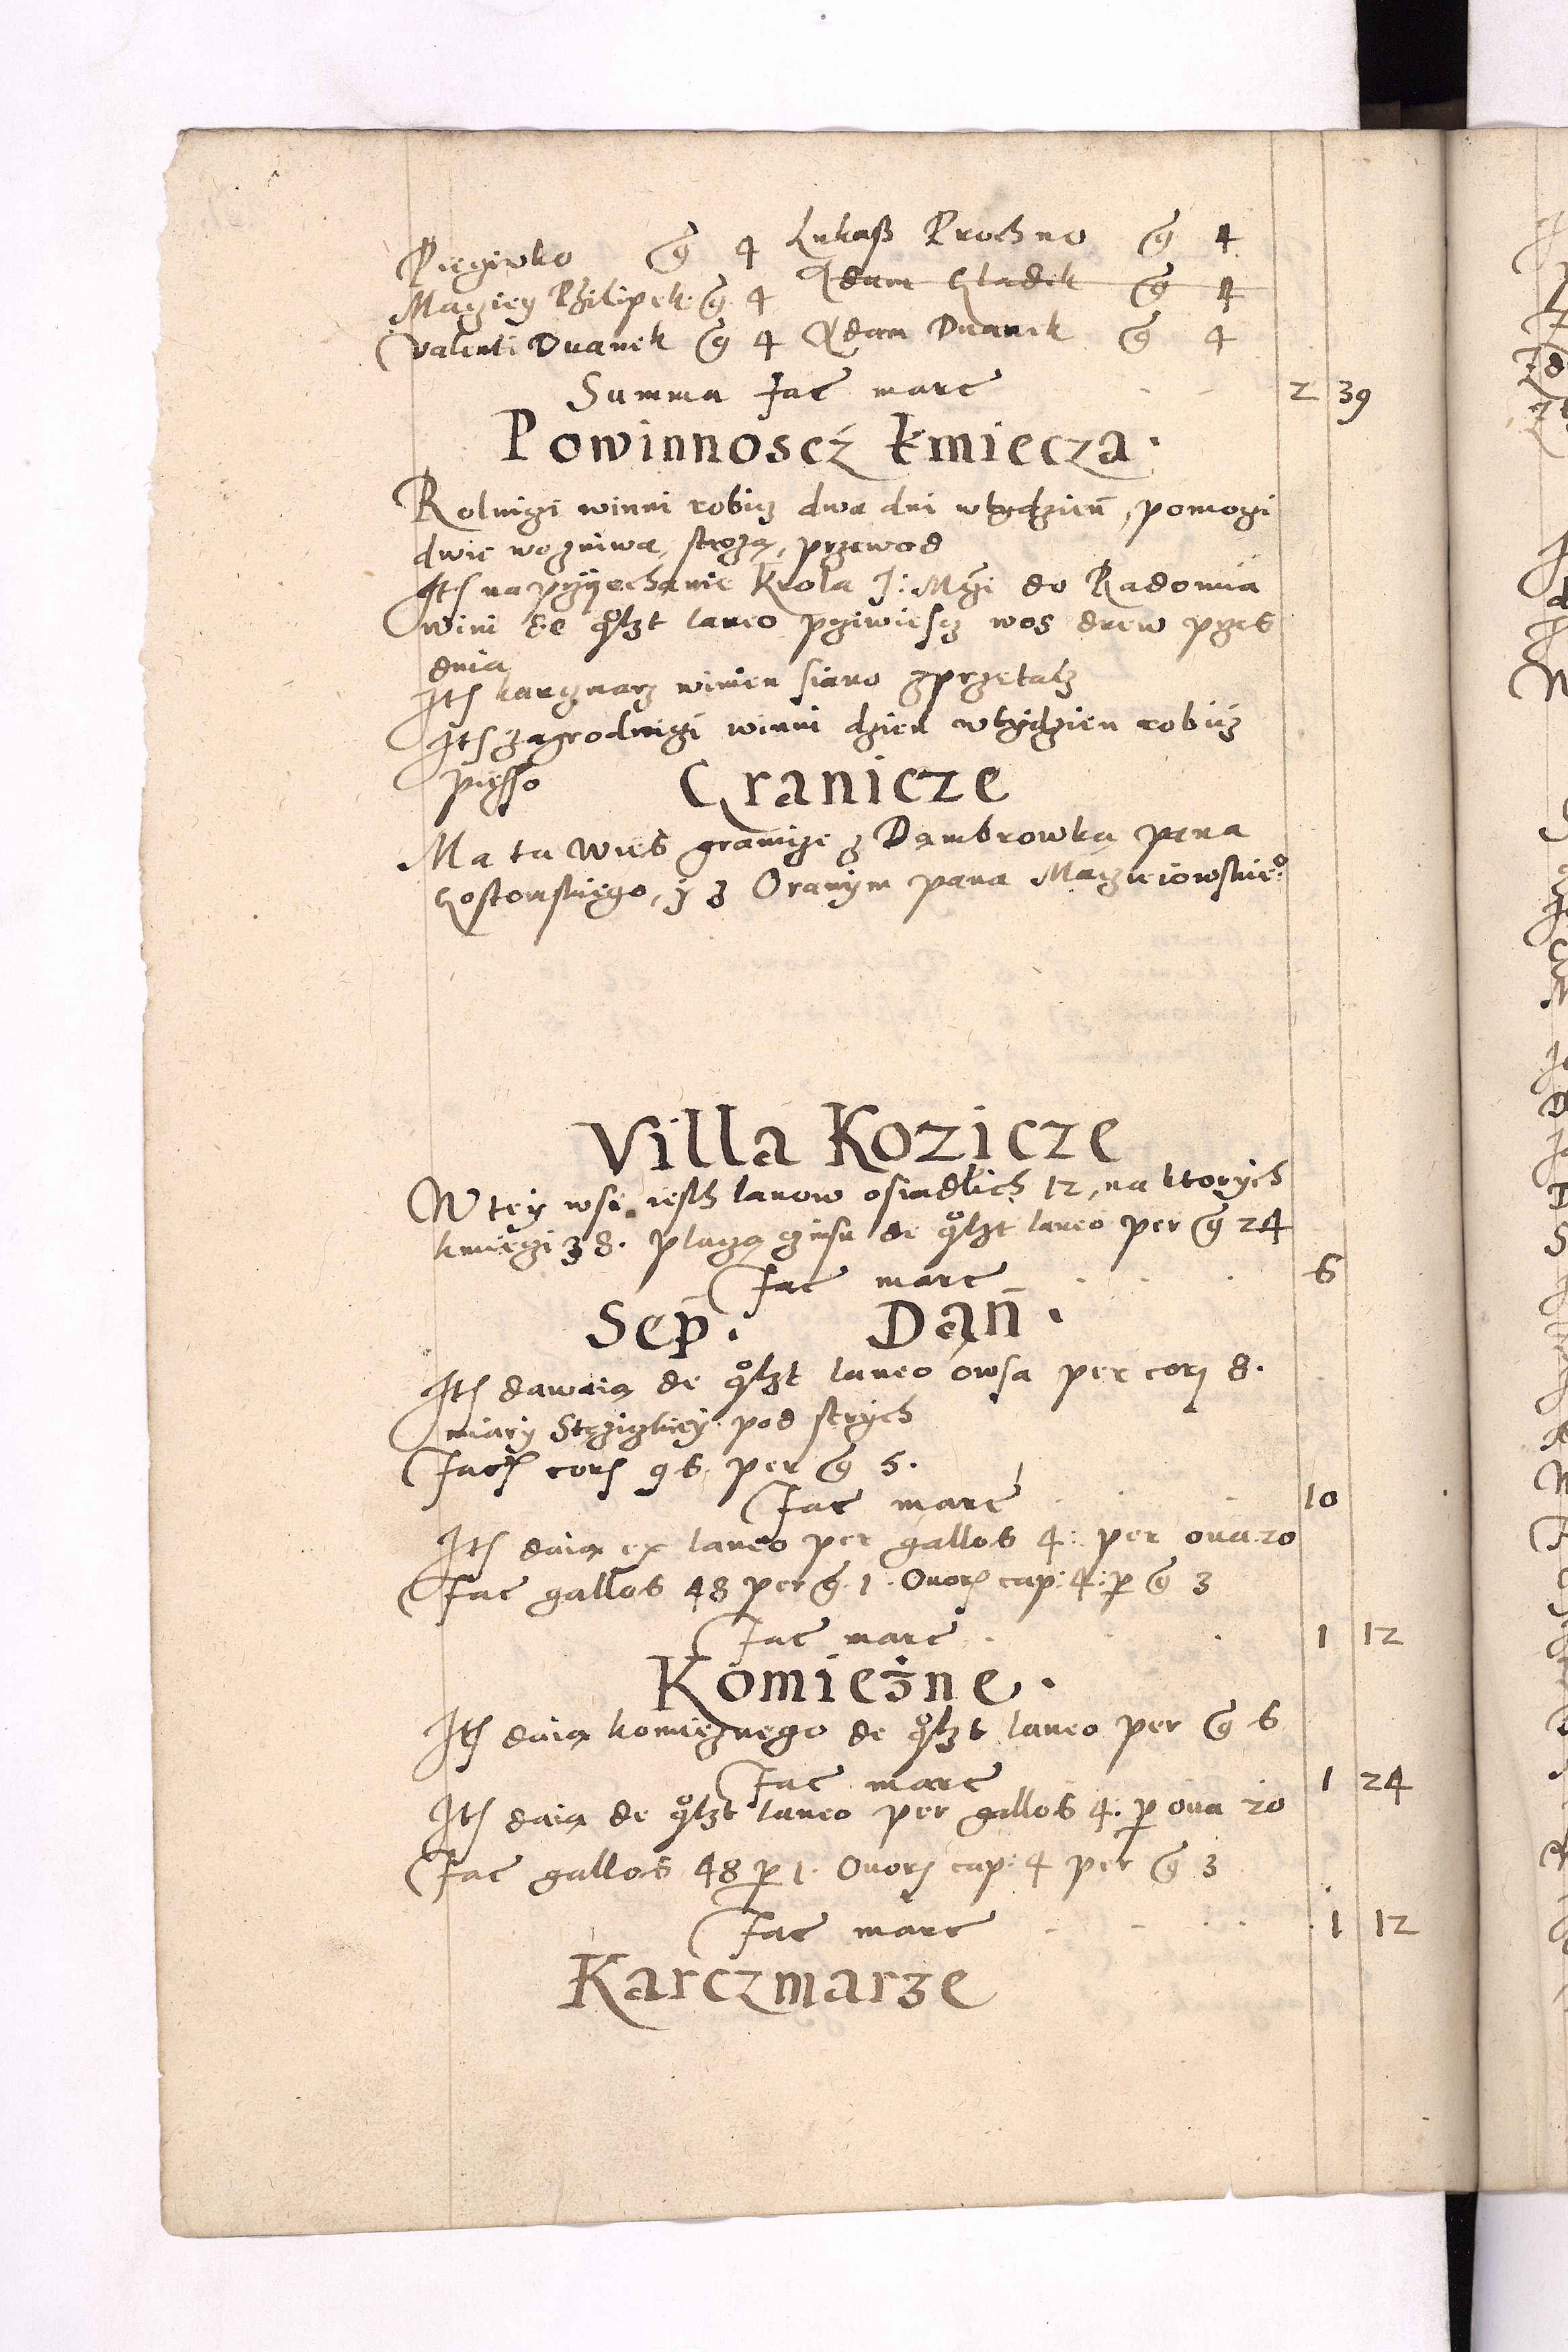 Pięgiwko g 4 Lukasz Prochno g 4
Macziey Philipek g 4 Adam Gładik g 4
Valenti Dvanek g 4 Adam Dvanek g 4
Summa fac marc 2 39
Powinnoscź kmiecza.
Rolniczi winni robicz dwa dni wtydzień, pomoczi
dwie wezniwa, strożą, przewod
Itē na przyiechanie Krola J: Mczi do Radomia
wini de qłzt laneo prziwiescz wos drew przes
dnia
Itē karczmarz winien siano zprzetacz
Itē zagrodniczi winni dzien wtydzien robicz
pięsso
Granicze
Ma ta wies granicze z Dąmbrowką pana
Gostomskiego, y z Oranym pana Maczieiowskieo
Villa Kozicze
W tey wsi iesth lanow osiadlich 12, na ktorych
kmieczi 38. placzą czinsu de qłzt laneo per g 24
fac marc 6
Sep. Dań.
Itē dawaią de qłzt laneo owsa per cor 8.
miary Strzizkiey pod strych
facē corē 96 per g 5.
fac marc 10
Itē daią ex laneo per gallos 4: per oua 20
fac gallos 48 per g 1. Ouorē cap: 4: p g 3
fac marc 1 12
Komieżne.
Itē daią komieznego de qłzt laneo per g 6
fac marc 1 24
Itē daią de qłzt laneo per gallos 4. p oua 20
fac gallos 48 p 1. Ouorē cap: 4 per g 3
fac marc 1 12
Karczmarze